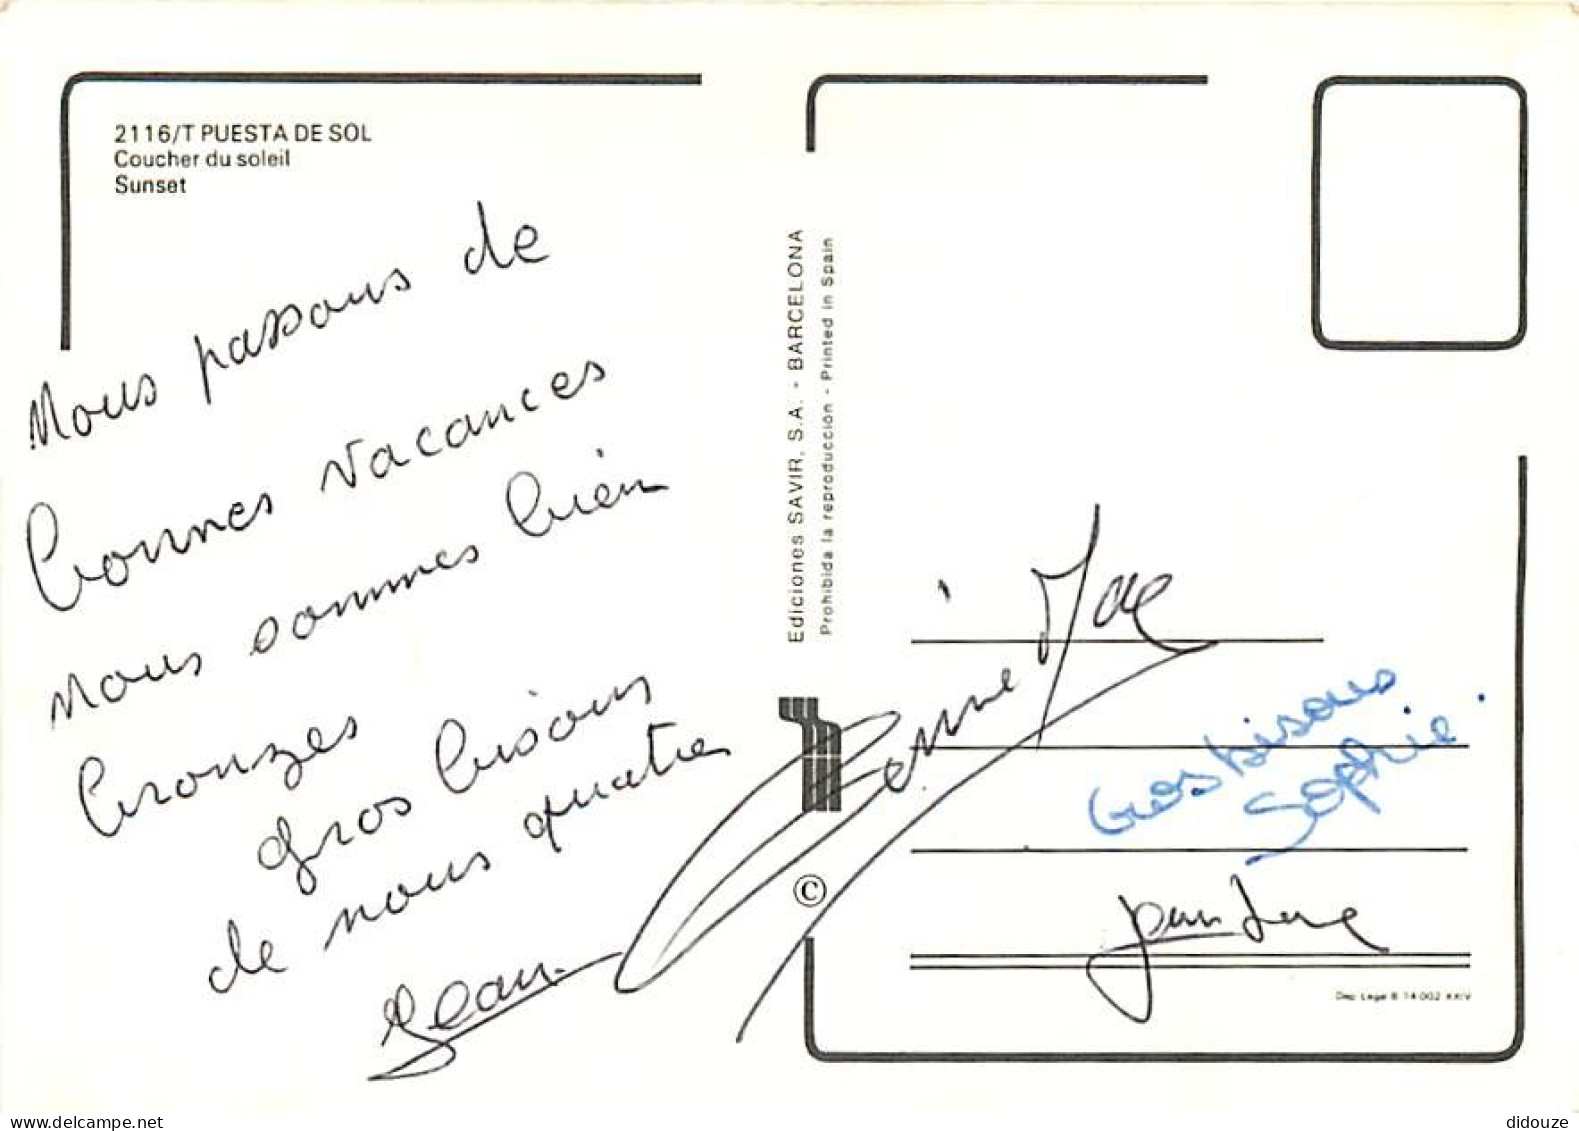 2116/T PUESTA DE SOL
Coucher du soleil
Sunset
Nous passons de
bonnes vacances
nous sommes bien
bronzes
gros bisous
de nous quatre
Jean
Ediciones SAVIR, S.A. - BARCELONA
Prohibida la reproducción - Printed in Spain
©
Gros bisous
Sophie.
Jean Luc
Dep Legal B 14 002 XXIV
delcampe.net
didouze